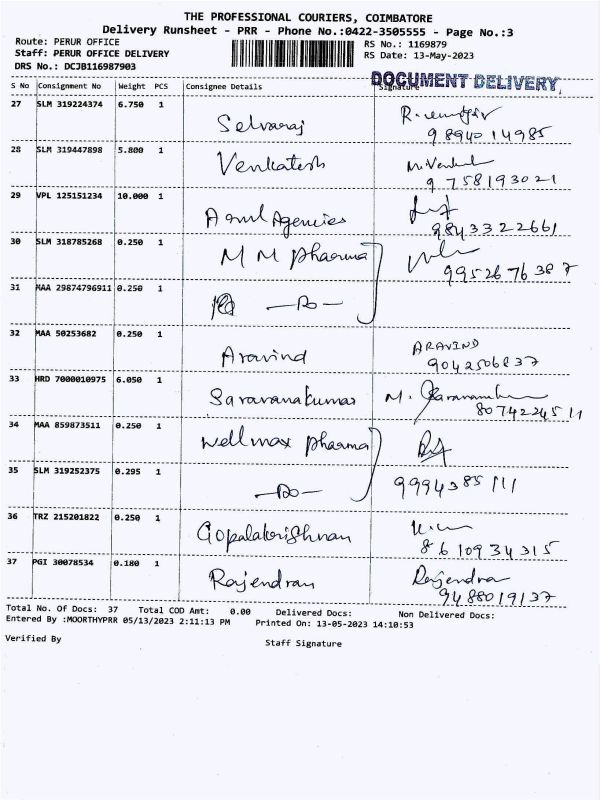 THE PROFESSIONAL COURIERS, COIMBATORE
Delivery Runsheet - PRR - Phone No.:0422-3505555 - Page No.:3
Route: PERUR OFFICE RS No.: 1169879
Staff: PERUR OFFICE DELIVERY RS Date: 13-May-2023
DRS No.: DCJB116987903
DOCUMENT DELIVERY
S No Consignment No Weight PCS Consignee Details Signature
27 SLM 319224374 6.750 1
Selvaraj 98940 14985
28 SLM 319447898 5.800 1
Venkatesh 9758193021
29 VPL 125151234 10.000 1
Agencies 9843322661
30 SLM 318785268 0.250 1
M M pharma 9952676387
31 MAA 29874796911 0.250 1
—Do—
32 MAA 50253682 0.250 1
Aravind ARAVIND
9042506837
33 HRD 7000010975 6.050 1
Saravanakumar 8074224511
34 MAA 859873511 0.250 1
Wellmax pharma
35 SLM 319252375 0.295 1
—Do— 9994385111
36 TRZ 215201822 0.250 1
Gopalakrishnan 8610934315
37 PGI 30078534 0.180 1
Rajendran Rajendran
9488019137
Total No. Of Docs: 37 Total COD Amt: 0.00 Delivered Docs: Non Delivered Docs:
Entered By :MOORTHYPRR 05/13/2023 2:11:13 PM Printed On: 13-05-2023 14:10:53
Verified By Staff Signature